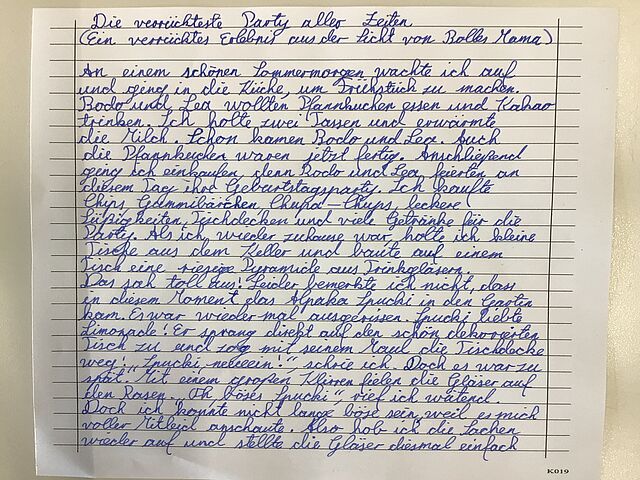 Die verrückteste Party aller Zeiten
(Ein verrücktes Erlebnis aus der Sicht von Bolles Mama)
An einem schönen Sommermorgen wachte ich auf
und ging in die Küche, um Frühstück zu machen.
Bodo und Lea wollten Pfannkuchen essen und Kakao
trinken. Ich holte zwei Tassen und erwärmte
die Milch. Schon kamen Bodo und Lea. Auch
die Pfannkuchen waren jetzt fertig. Anschließend
ging ich einkaufen, denn Bodo und Lea feierten an
diesem Tag ihre Geburtstagsparty. Ich kaufte
Chips, Gummibärchen, Chupa-Chups, leckere
Süßigkeiten, Tischdecken und viele Getränke für die
Party. Als ich wieder zuhause war, holte ich kleine
Tische aus dem Keller und baute auf einem
Tisch eine riesige Pyramide aus Trinkgläsern.
Das sah toll aus! Leider bemerkte ich nicht, dass
in diesem Moment das Alpaka Spucki in den Garten
kam. Er war wieder mal ausgerissen. Spucki liebte
Limonade! Er sprang direkt auf den schön dekorierten
Tisch zu und zog mit seinem Maul die Tischdecke
weg! "Spucki neeeein!", schrie ich. Doch es war zu
spät. Mit einem großen Klirren fielen die Gläser auf
den Rasen. "Ih böses Spucki" rief ich wütend.
Doch ich konnte nicht lange böse sein, weil es mich
voller Mitleid anschaute. Also hob ich die Sachen
wieder auf und stellte die Gläser diesmal einfach
K019